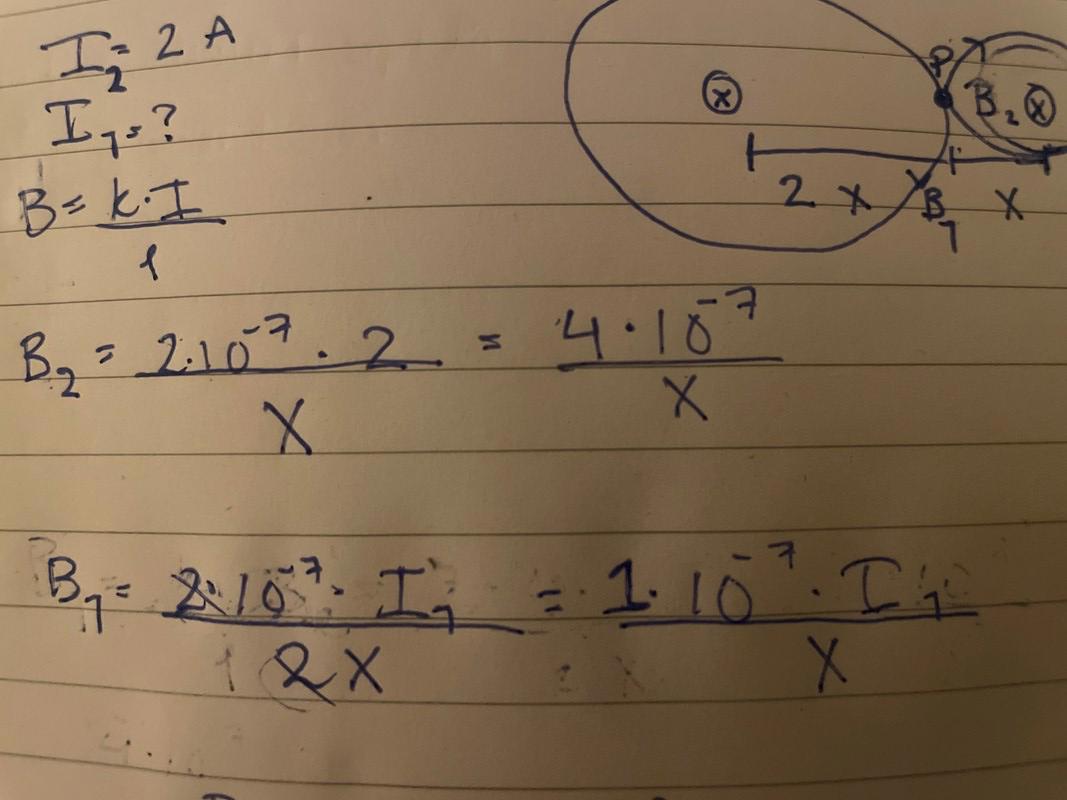 I₂ = 2 A
I₁ = ?
B = k·I / r
P
B₂
2x
B₁
x
B₂ = 2·10⁻⁷ · 2 / x = 4·10⁻⁷ / x
B₁ = 2·10⁻⁷ · I₁ / 2x = 1·10⁻⁷ · I₁ / x